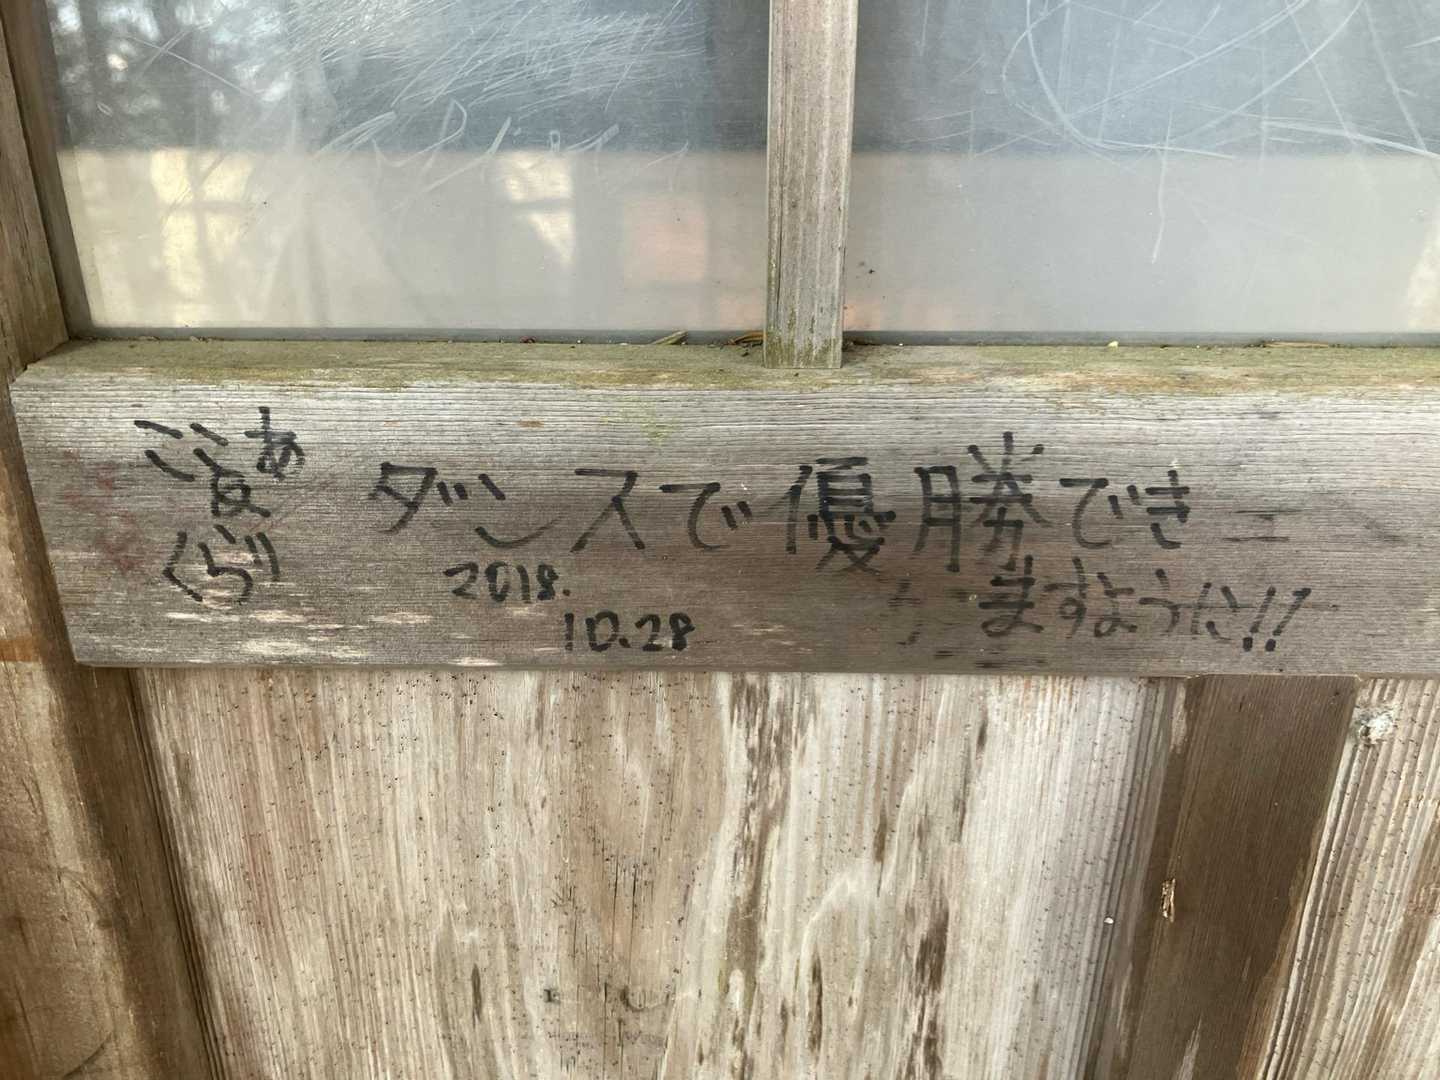 ダンスで優勝でき
ますように!!
2018.
10.28